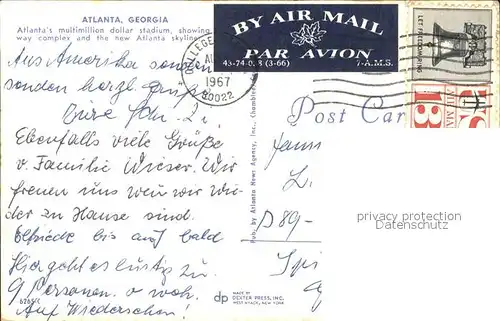 ATLANTA, GEORGIA
Atlanta's multimillion dollar stadium, showing
way complex and the new Atlanta skyline
BY AIR MAIL
PAR AVION
43-74-0.8 (3-66) 7-A.M.S.
LET FREEDOM RING
1967
30022
US
AIR MAIL
13
Post Car
Aus Amerika senden
senden herzl. Grüße
Eure
Ebenfalls viele Grüße
v. Familie Wieser. Wir
freuen uns wenn wir wie
der zu Hause sind.
Elfriede bis auf bald
Hier geht es lustig zu
9 Personen. o woh.
Auf Wiedersehen!
L.
D 89-
Pub. by Atlanta News Agency, Inc., Chamblee
privacy protection
Datenschutz
6265C
dp
MADE BY
DEXTER PRESS, INC.
WEST NYACK, NEW YORK